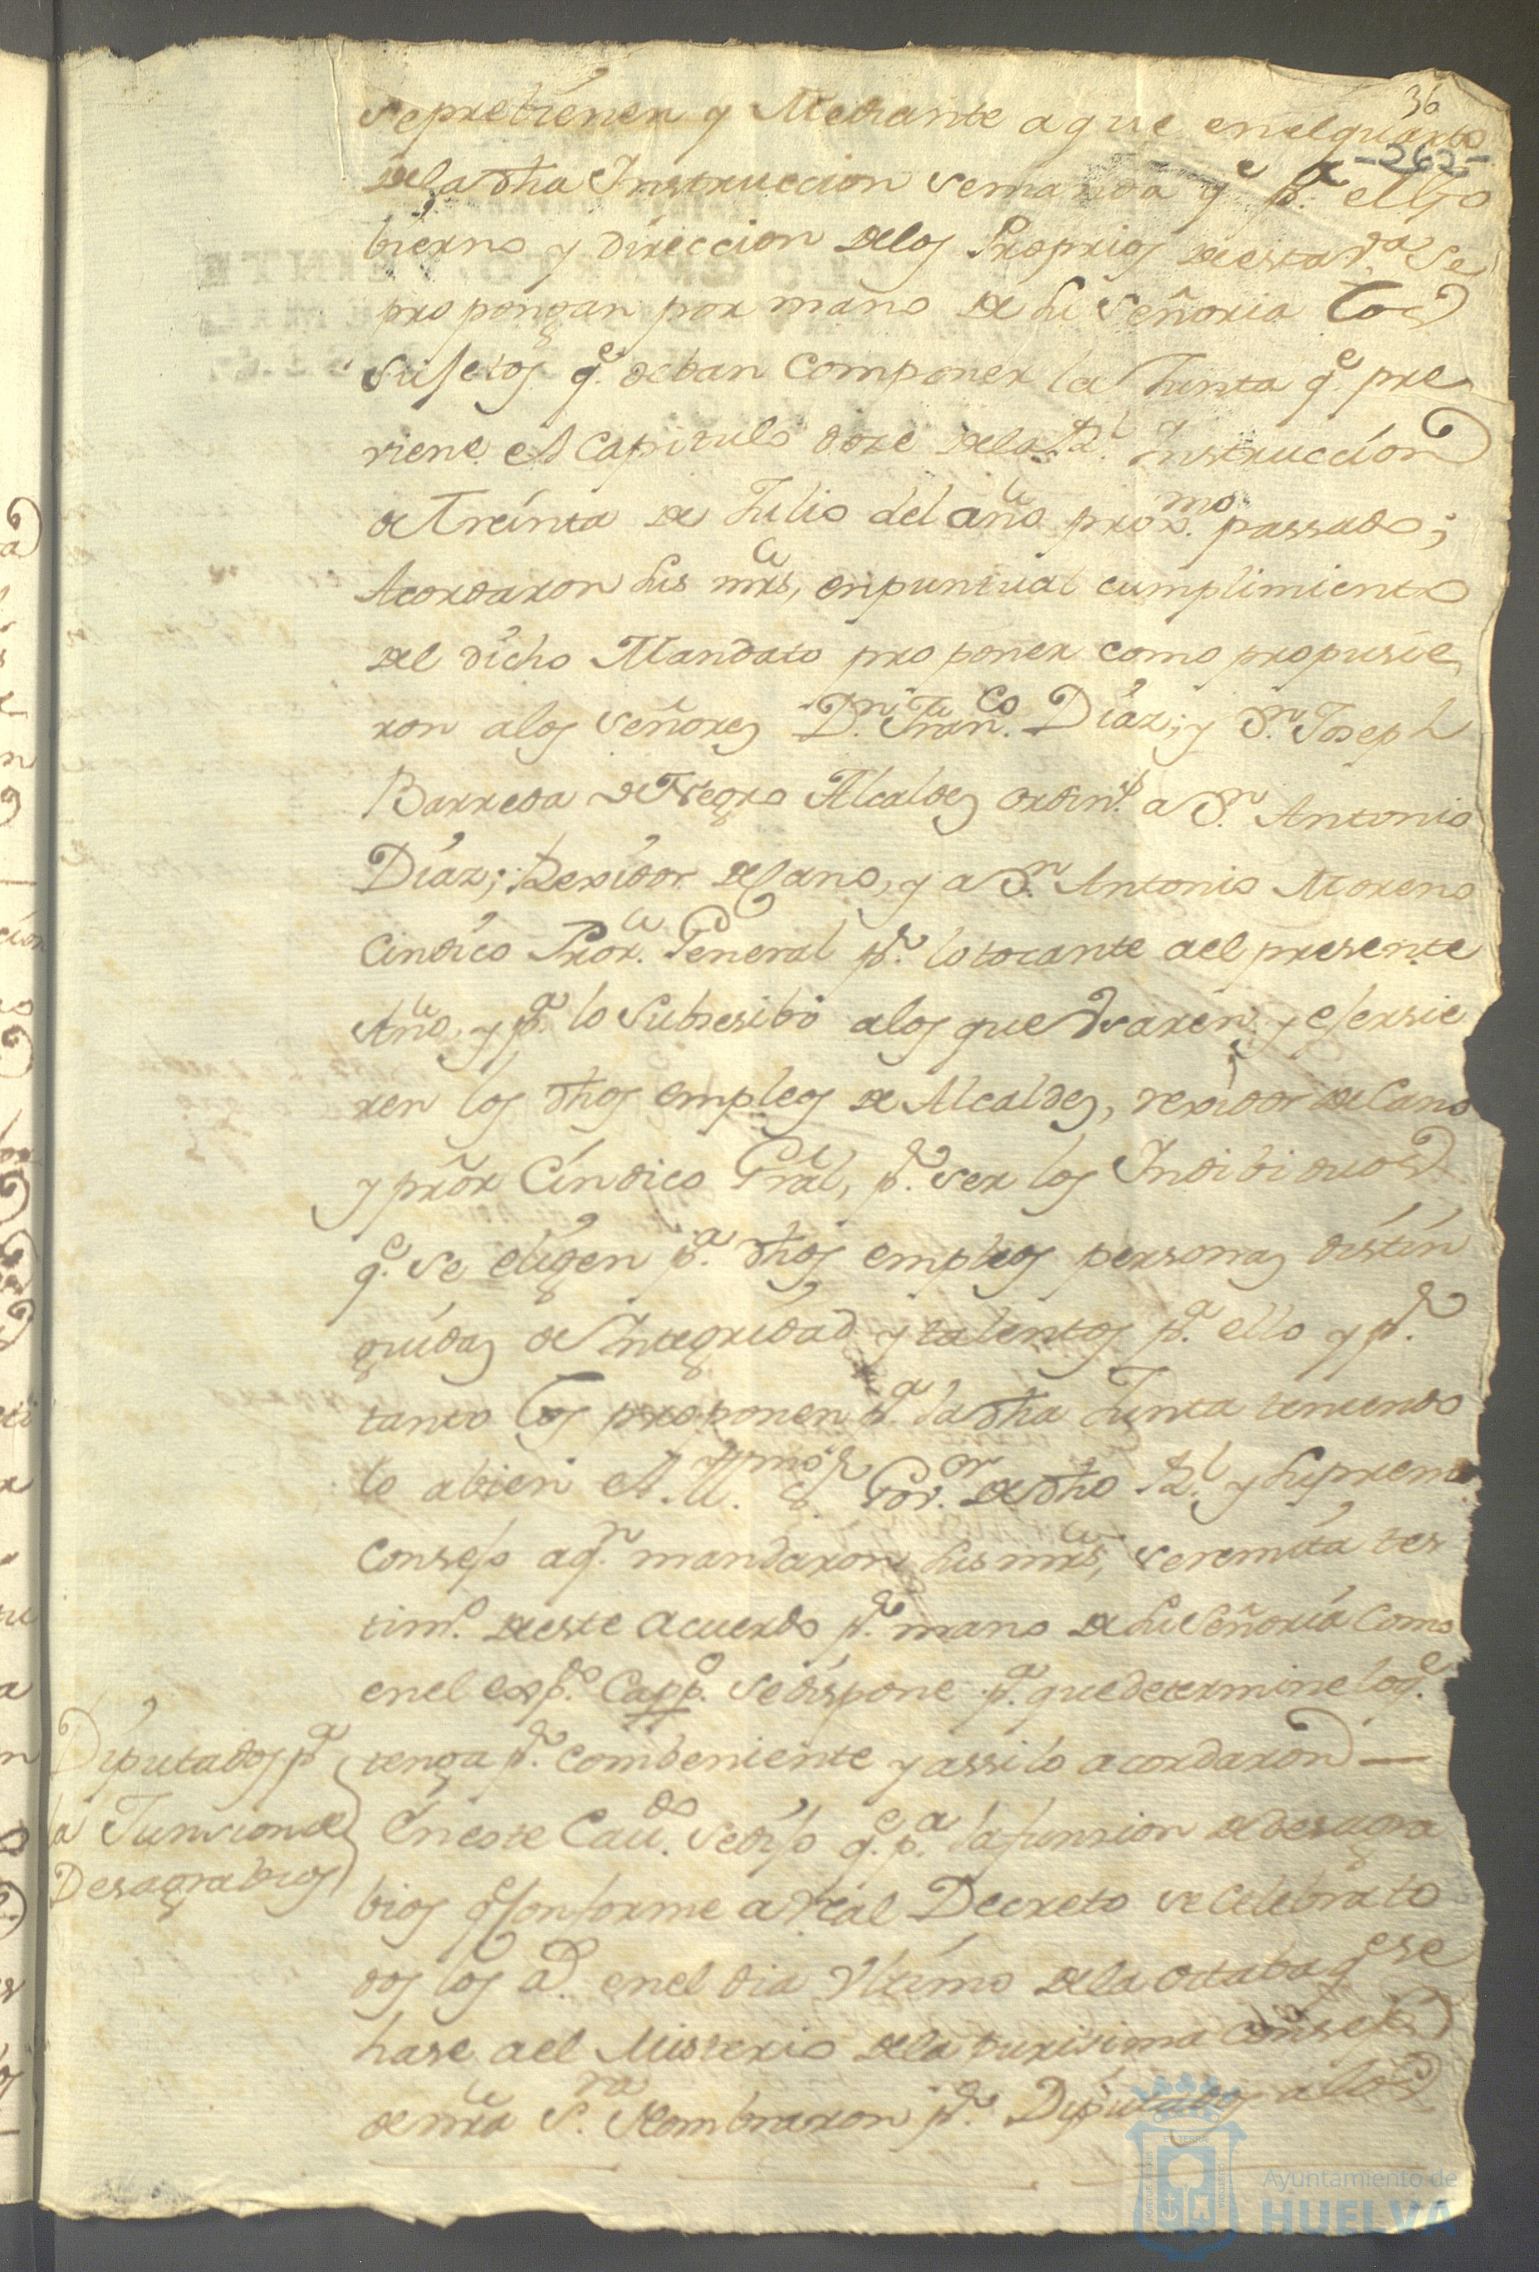 36
-262-
se prebienen y Mediante a que en el quarto
de la dha Instruccion se manda qe pr. el Go
bierno y direccion de los Proprios de esta va. se
propongan por mano de su señoria los
sujetos qe. deban componer la Junta qe. pre
viene el Capitulo doze de la Rl. Instruccion
de treinta de Julio del año proxmo. passado;
Acordaron sus mrds, en puntual cumplimiento
del dicho Mandato proponer como propusie
ron a los señores Dn. Franco. Diaz; y Dn. Joseph
Barreda de Negro Alcaldes ordins. a Dn. Antonio
Diaz; Rexidor Decano, y a Dn. Antonio Moreno
Cindico Pror. General pr. lo tocante a el presente
Año, y pa. lo subsesibo a los que Usaren y ejersie
ren los dhos empleos de Alcaldes, rexidor de Cano
y pror Cindico Gral, pr. ser los Indibiduos
qe. se eligen pa. dhos empleos personas distin
guidas de Integridad y talentos pa. ello y pr.
tanto los proponen pa. la dha Junta teniendo
lo a bien el Illmo. Sr. Govor. de dho Rl. y Supremo
Consejo a qn. mandaron sus mrds, se remita tes
timo. de este acuerdo pr. mano de su Señoria como
en el expdo. Capo. se dispone pa. que determine lo qe.
tenga pr. combeniente y assi lo acordaron —
Diputados pa
la Funsion de
Desagrabios
En este Cavdo. se dijo qe. pa. la funsion de desagra
bios qe conforme a Real Decreto se celebra to
dos los as. en el dia Ultimo de la octaba qe se
hase a el Misterio de la purisima Consepon
de nra Sra. Nombraron pr. Diputados a los
Ayuntamiento de
HUELVA